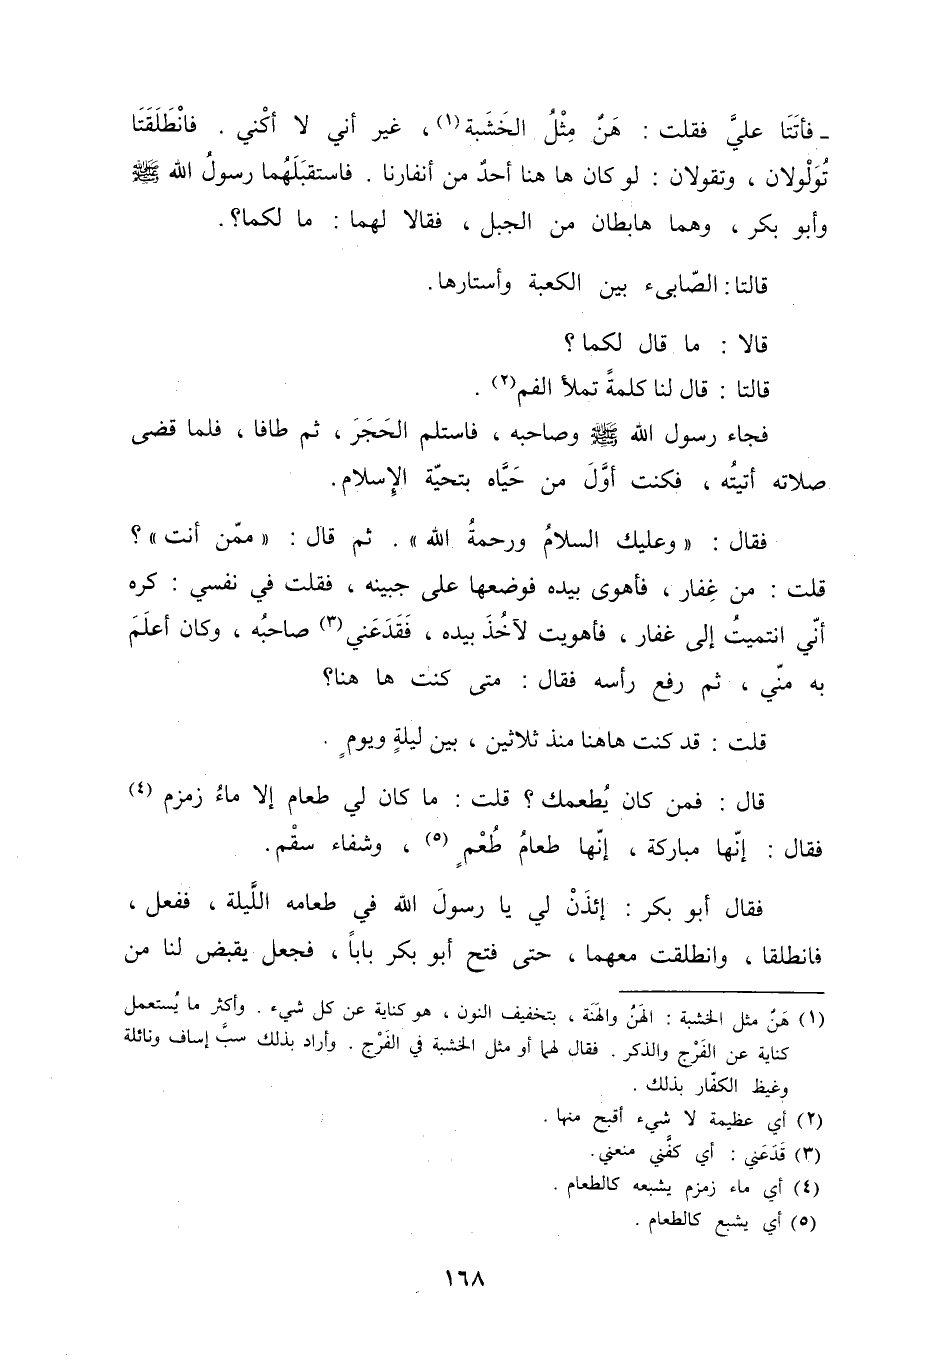 ـ فأتَتَا عليَّ فقلت : هَنٌ مِثْلُ الخَشَبة(١) ، غير أني لا أكْني . فانْطَلَقَتَا
تُوَلْولان ، وتقولان : لو كان ها هنا أحدٌ من أنفارنا . فاستقبَلَهُما رسولُ الله ﷺ
وأبو بكر ، وهما هابطان من الجبل ، فقالا لهما : ما لكما؟.
قالتا : الصّابىء بين الكعبة وأستارها.
قالا : ما قال لكما ؟
قالتا : قال لنا كلمةً تملأ الفم(٢) .
فجاء رسول الله ﷺ وصاحبه ، فاستلم الحَجَرَ ، ثم طافا ، فلما قضى
صلاته أتيتُه ، فكنت أوَّلَ من حَيَّاه بتحيّة الإسلام.
فقال : « وعليك السلامُ ورحمةُ الله » . ثم قال : « ممّن أنت » ؟
قلت : من غِفار ، فأهوى بيده فوضعها على جبينه ، فقلت في نفسي : كره
أنّي انتميتُ إلى غفار ، فأهويت لآخُذَ بيده ، فَقَدَعَني(٣) صاحبُه ، وكان أعلَمَ
به منّي ، ثم رفع رأسه فقال : متى كنت ها هنا؟
قلت : قد كنت هاهنا منذ ثلاثين ، بين ليلةٍ ويومٍ .
قال : فمن كان يُطعمك ؟ قلت : ما كان لي طعام إلا ماءُ زمزم (٤)
فقال : إنّها مباركة ، إنّها طعامُ طُعْمٍ (٥) ، وشفاء سقْم.
فقال أبو بكر : إئذَنْ لي يا رسولَ الله في طعامه اللَّيلة ، ففعل ،
فانطلقا ، وانطلقت معهما ، حتى فتح أبو بكر باباً ، فجعل يقبض لنا من
(١) هَنٌ مثل الخشبة : الهَنُ والهَنَة ، بتخفيف النون ، هو كناية عن كل شيء . وأكثر ما يُستعمل
كناية عن الفَرْج والذكر . فقال لهما أو مثل الخشبة في الفَرْج . وأراد بذلك سبَّ إساف ونائلة
وغيظ الكفّار بذلك .
(٢) أي عظيمة لا شيء أقبح منها .
(٣) قَدَعَني : أي كفَّني منعني.
(٤) أي ماء زمزم يشبعه كالطعام .
(٥) أي يشبع كالطعام .
١٦٨